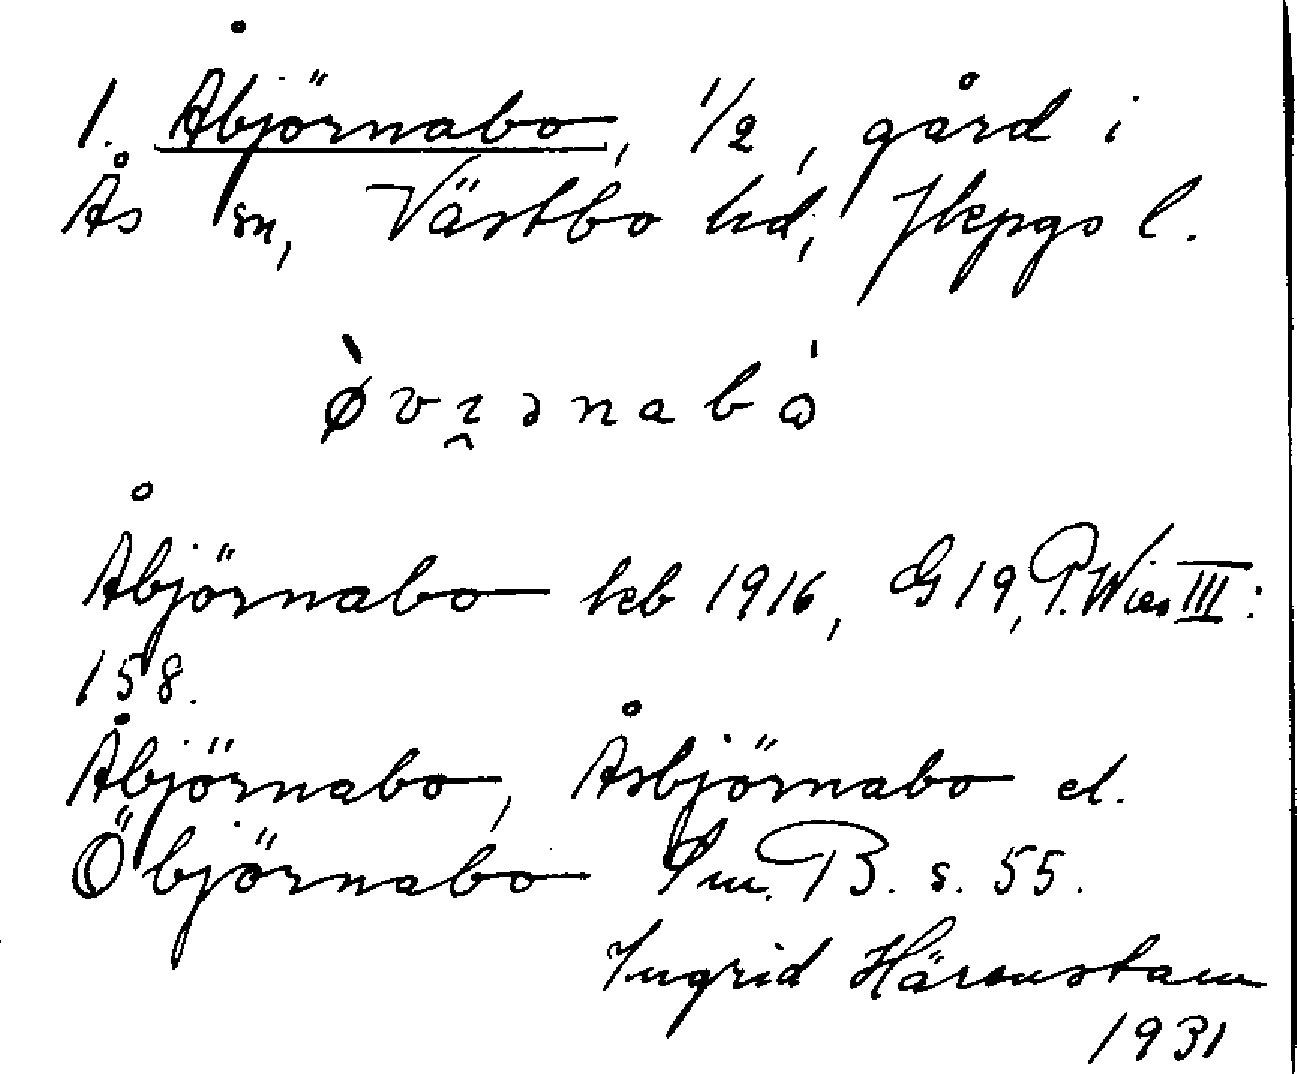 1. Åbjörnabo, 1/2, gård i
Ås sn, Västbo hd, Jkpgs l.
Åbjörnabo kb 1916, G 19, P. Wies III:
158.
Åbjörnabo, Åsbjörnabo el.
Öbjörnabo Sm. B. s. 55.
Ingrid Härenstam
1931